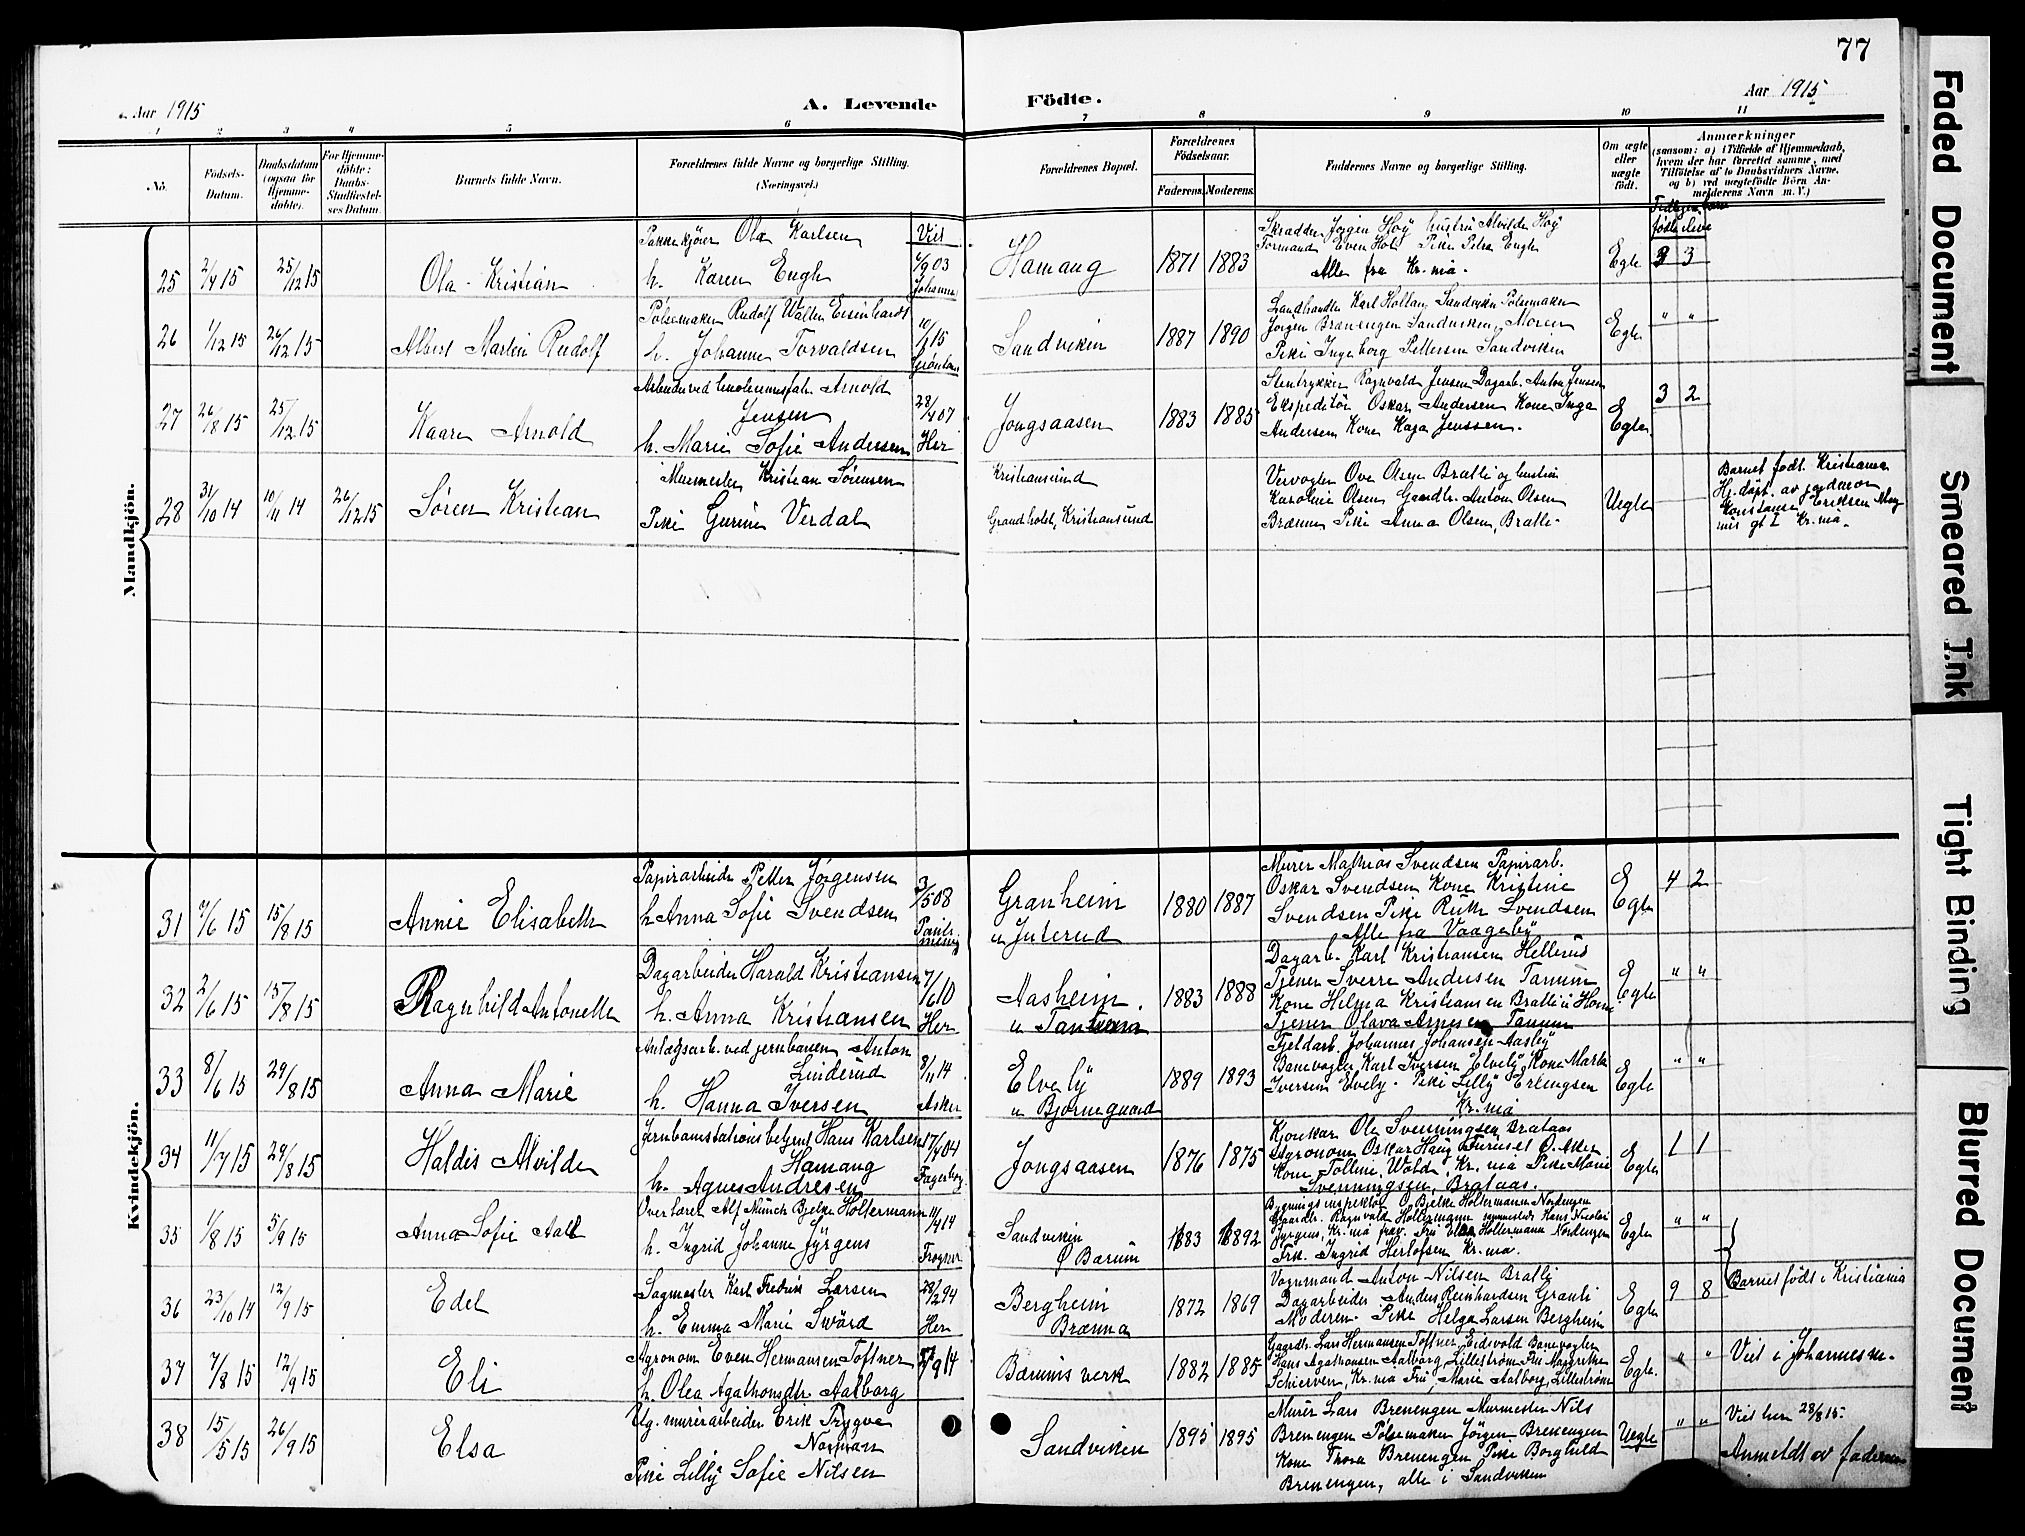 77
Aar 1915
A. Levende Födte.
Aar 1915
1 2 3 4 5 6 7 8 9 10 11
No.
Födsels-Datum.
Daabsdatum (ogsaa for Hjemmedöbte).
For Hjemmedöbte: Daabs-Stadfæstelses Datum.
Barnets fulde Navn.
Forældrenes fulde Navne og borgerlige Stilling. (Næringsvei.)
Forældrenes Bopæl.
Forældrenes Födselsaar.
Faderens. Moderens.
Faddernes Navne og borgerlige Stilling.
Om ægte eller uægte födt.
Anmærkninger
(saasom: a) i Tilfælde af Hjemmedaab, hvem der har forrettet samme, med Tilföielse af to Daabsvidners Navne, og b) ved uægtefödte Börn Anmelderens Navn m. V.)
Mandkjön.
25 2/4 15 25/12 15 Ola Kristian
Pakkekjører Ola Karlsen
h. Karen Engh
Viet 4/9 03 Johannes
Hamang 1871 1883
Skrædder Jørgen Høy hustru Alvilde Høy
Formand Even Hole Pike Petra Engh
Alle fra Kr.nia.
Egte 3 3
26 1/12 15 26/12 15 Albert Martin Rudolf
Pølsemaker Rudolf Walter Eisenhardt
h. Johanne Torvaldsen
10/1 15
Sandviken 1887 1890
Landhandler Karl Hollan, Sandviken Pølsemaker
Jørgen Brenengen Sandviken, Moren
Pike Ingeborg Pettersen Sandviken
Egte " "
27 26/8 15 25/12 15 Kaare Arnold
Arnold
Jensen
h. Marie Sofie Andersen
28/4 07 Her
Jongsaasen 1883 1885
Stentrykker Ragnvald Jensen Dagarb. Anton Jensen
Ekspeditør Oskar Andersen Kone Inga
Andersen Kone Kaja Jenssen.
Egte 3 2
28 31/10 14 10/11 14 26/12 15 Søren Kristian
Murmester Kristian Sørensen
Pike Gurine Verdal
Kristiansund
Grand hotel, Kristiansund
Veivogter Ove Olsen Bratli og hustru
Karoline Olsen Gaardbr. Anton Olsen
Brænna Pike Anna Olsen, Bratli.
Uegte
Barnet født i Kristiania
Hj.døpt. av jordmor
Konstanse Eriksen
Kr.nia.
Kvindekjön.
31 7/6 15 15/8 15 Annie Elisabeth
Papirarbeider Petter Jørgensen
h Anna Sofie Svendsen
3/5 08
Granheim
u Juterud
1880 1887
Murer Mathias Svendsen Papirarb.
Oskar Svendsen Kone Kristine
Svendsen Pike Ruth Svendsen
Alle fra Vaageby
Egte 4 2
32 2/6 15 15/8 15 Ragnhild Antonette
Dagarbeider Harald Kristiansen
h. Anna Kristiansen
7/6 10 Her
Aasheim
u Tanum
1883 1888
Dagarb. Karl Kristiansen Hellerud
Tjener Sverre Andersen Tanum
Kone Helma Kristiansen Bratli i Homi
Tjener Olava Arnesen Tanum
Egte " "
33 8/6 15 29/8 15 Anna Marie
Anlægsarb. ved jernbanen Anton
Linderud
h. Hanna Iversen
8/11 14 Asker
Elvely
u Bjørnegaard
1889 1893
Fjeldarb. Johannes Johansen Aasly
Banevogter Karl Iversen Elvely, Kone Marta
Iversen Elvely. Pike Lilly Erlingsen
Kr.nia
Egte " "
34 11/7 15 29/8 15 Haldis Alvilde
Jernbanestationsbetjent Hans Karlsen
Hamang
h. Agnes Andresen
17/4 04 Fagerborg
Jongsaasen 1876 1875
Kjøkar Ole Svenningsen Brataas
Agronom Oskar Haug Furuset Ø. Aker
Kone Tolline Wold, Kr.nia Pike Marie
Svenningsen, Brataas.
Egte 1 1
35 1/8 15 5/9 15 Anna Sofie Aall
Overlærer Alf Münch Bjelke Holtermann
h. Ingrid Johanne Jürgens
11/4 14 Frogner
Sandviken
Ø Bærum
1883 1892
Bygningsinspektør O Bjelke Holtermann Nordengen
Gaardbr. Ragnvald Holtermann sammesteds Hans Nicolai
Jürgens, Kr.nia frav. Fru Elna Holtermann Nordengen
Frk. Ingrid Herlofsen Kr.nia.
Egte " "
36 23/10 14 12/9 15 Edel
Sagmester Karl Fredrik Larsen
h. Emma Marie Swärd
28/12 94 Her
Bergheim
Brænna
1872 1869
Vognmand Anton Nilsen Bratli
Dagarbeider Anders Reinhardsen Granli
Moderen. Pike Helga Larsen Bergheim
Egte 9 8
Barnet født i Kristiania
37 7/8 15 12/9 15 Eli
Agronom Even Hermansen Toftner
h. Olea Agathonsdtr Aalborg
5/9 14
Bærums verk 1882 1885
Gaardb. Lars Hermansen Toftner, Eidsvold Banevogter
Hans Agathonsen Aalborg, Lillestrøm Fru Margrethe
Schierven, Kr.nia Fru Marie Aalborg, Lillestrøm
Egte. " "
Viet i Johannesm.
38 15/5 15 26/9 15 Elsa
Ug. murerarbeider Erik Trygve
Norman
Pike Lilly Sofie Nilsen
Sandviken 1895 1895
Murer Lars Brenengen Murmester Nils
Brenengen Pølsemaker Jørgen Brenengen
Kone Thora Brenengen Pike Borghild
Brenengen, alle i Sandviken
Uegte " "
Viet her 28/8 15.
Anmeldt av faderen
Faded Document
Smeared Ink
Tight Binding
Blurred Document